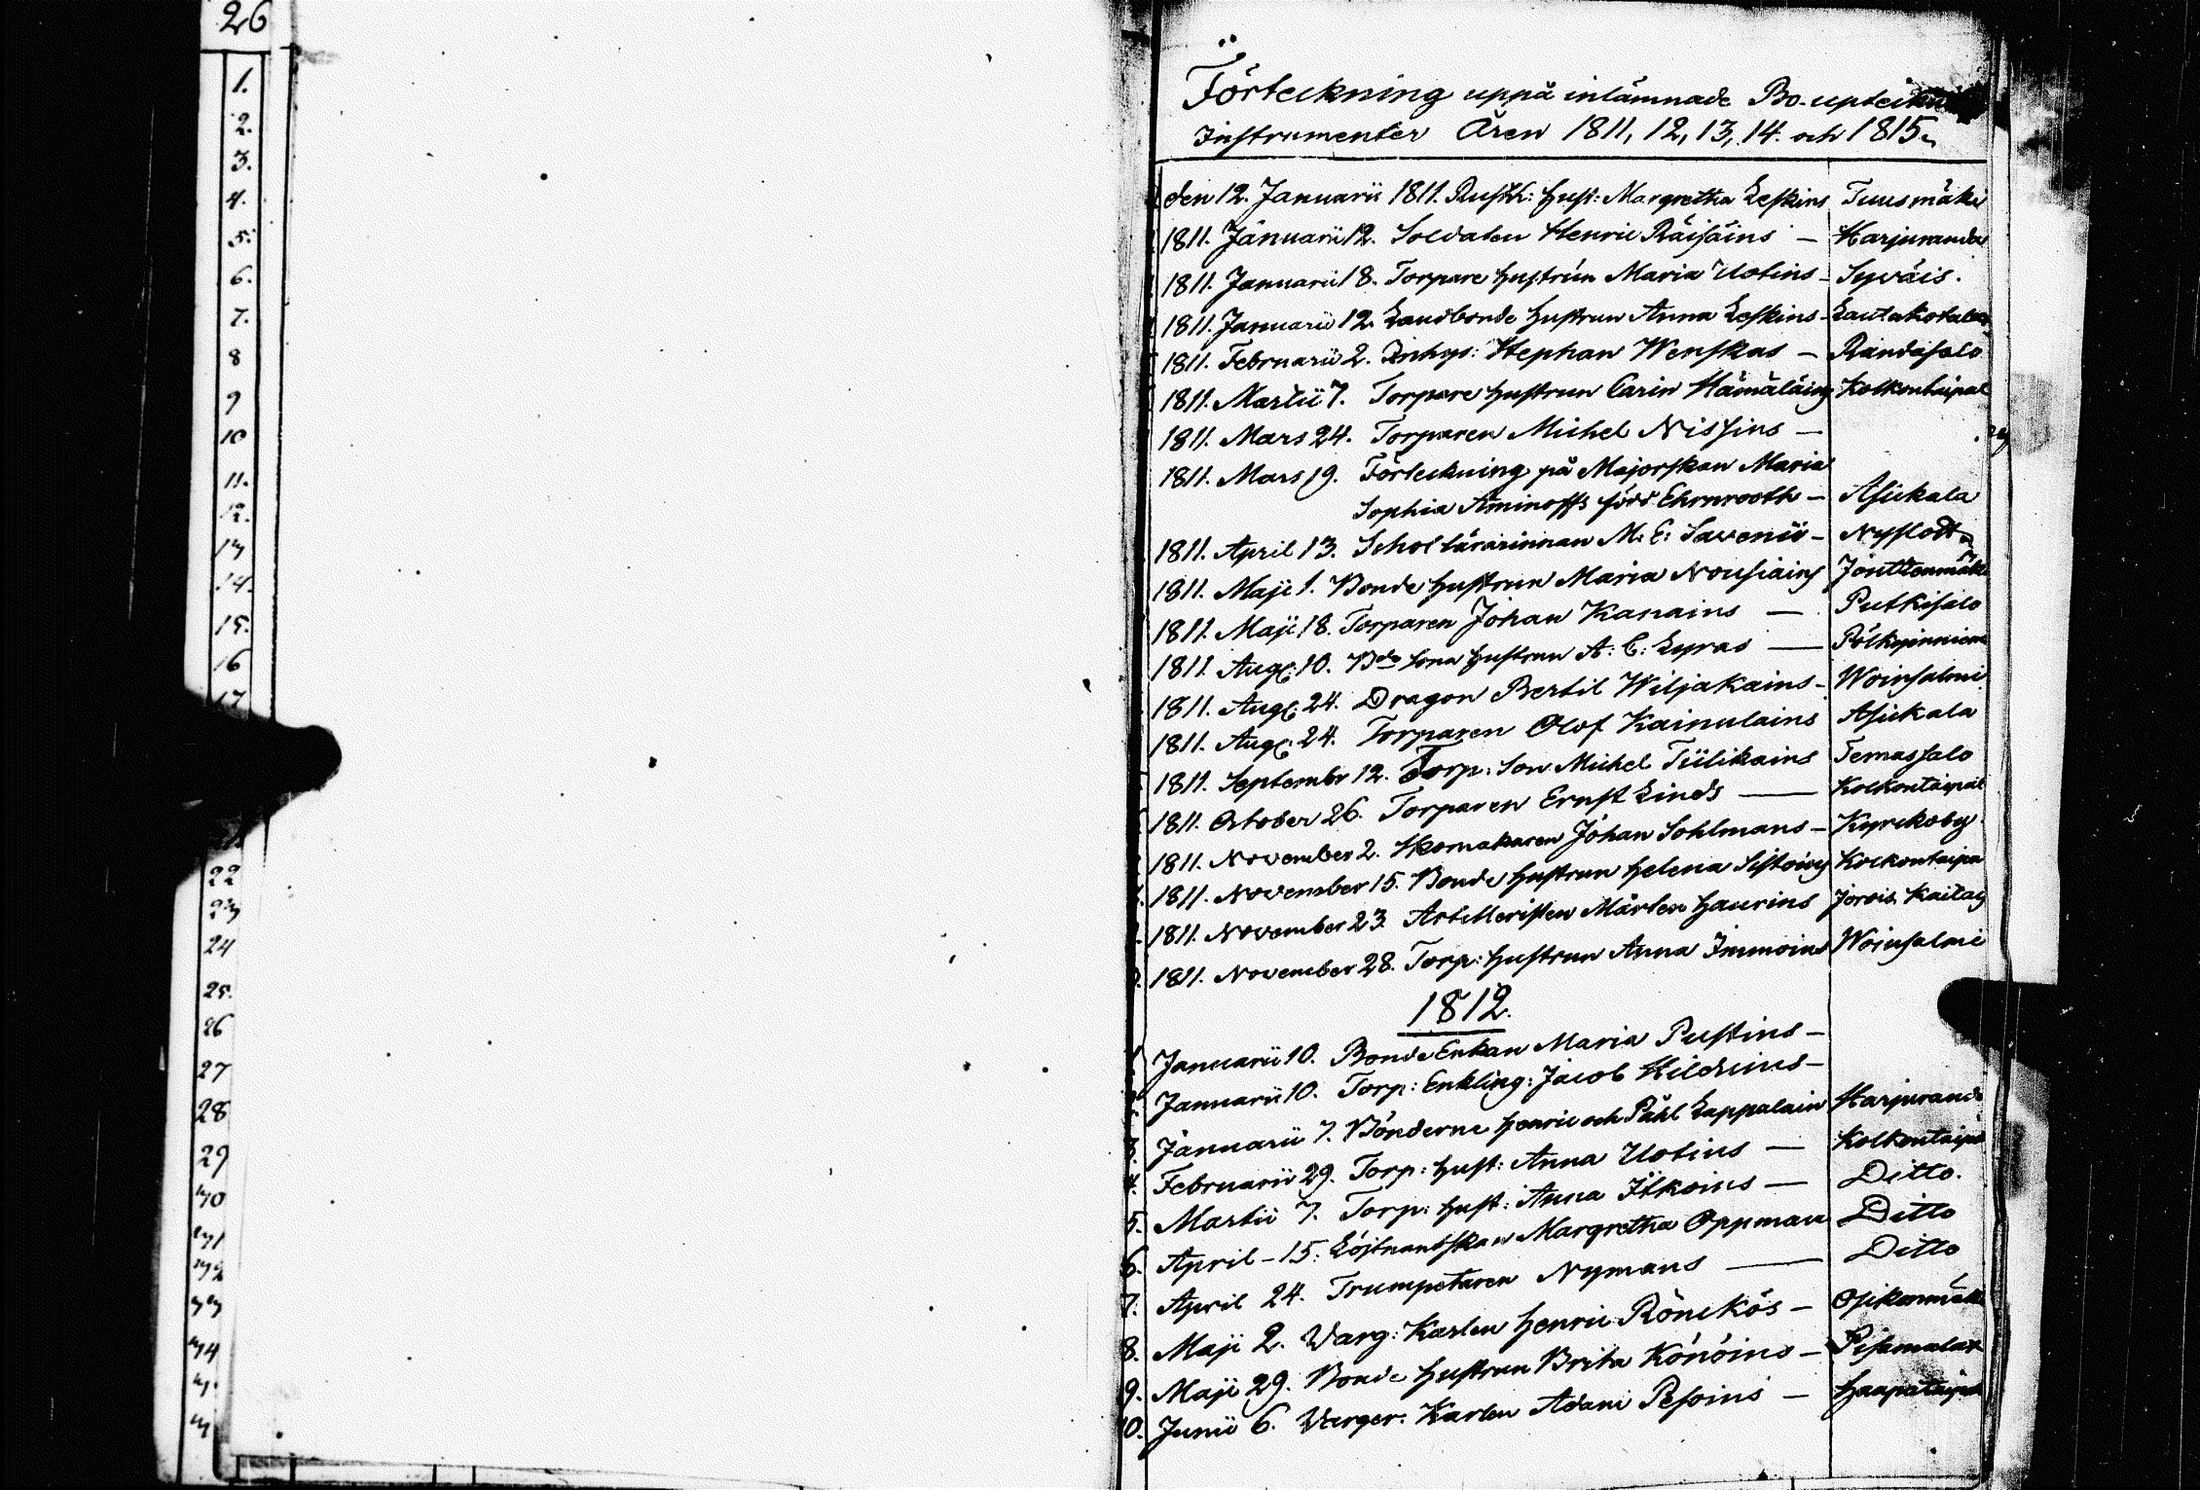 26
1.
2.
3.
4.
5.
6.
7.
8
9
10
11.
12.
13
14.
15.
16
17
22
23
24
25.
26
27
28
29
30
31
32
33
34
Förteckning uppå inlämnade Bo-upteckn
Instrumenter Åren 1811, 12, 13, 14. och 1815.
den 12. Januarii 1811. Rusth: hust: Margretha Leskins Tuusmäki
1811. Januarii 12. Soldaten Henric Räisäins — Harjuranda
1811. Januarii 18. Torpare hustrun Maria Uotins — Syväis.
1811. Januarii 12. Landbonde hustrun Anna Leskins — Lautakotala
1811. Februarii 2. Inhys: Stephan Wenskas — Randasalo
1811. Martii 7. Torpare hustrun Carin Hämäläing Kolkontaipal
1811. Mars 24. Torparen Michel Nissins —
1811. Mars 19. Förteckning på Majorskan Maria
Sophia Aminoffs född Ehrnrooth — Asickala
1811. April 13. Schollärarinnan M. E: Savenii — Nyslott
1811. Maji 1. Bonde hustrun Maria Nousiaing Jouttenmäki
1811. Maji 18. Torparen Johan Kanains — Putkisalo
1811. Aug: 10. Bde Sona hustrun A: C: Lyras — Pölkyinniemi
1811. Aug: 24. Dragon Bertil Wiljakains — Woinsalmi
1811. Aug: 24. Torparen Olof Kainulains Asickala
1811. Septembr 12. Torp: Son Michel Tiilikains Temassalo
1811. October 26. Torparen Ernst Linds — Kolkontaipal
1811. November 2. Skomakaren Johan Sohlmans — Kyrckoby
1811. November 15. Bonde hustrun Helena Sistoing Kolkontaipa
1811. November 23. Artilleristen Mårten Haurins Jorois Kaitais
1811. November 28. Torp: hustrun Anna Immoins Woinsalmi
1812.
Januarii 10. Bonde Enkan Maria Pustins —
Januarii 10. Torp: Enkling: Jacob Hildeins —
3. Januarii 7. Bönderne Henric och Påhl Lappalain Harjurand
4. Februarii 29. Torp: hust: Anna Uotins — Kolkontaipal
5. Martii 7. Torp: hust: Anna Itkoins — Ditto.
6. April — 15. Löjtnantskan Margretha Oppman Ditto
7. April 24. Trumpetaren Nymans — Ditto
8. Maji 2. Varg: Karlen Henric Rönckös — Osikonmäki
9. Maji 29. Bonde hustrun Brita Könöins — Pisamalax
10. Junii 6. Varger: Karlen Adam Pesoins — Haapataipal